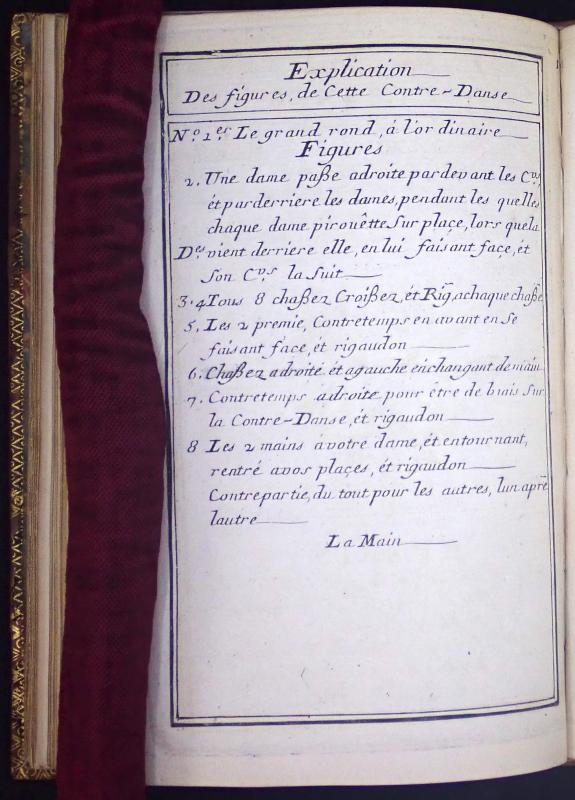 Explication
Des figures, de Cette Contre-Danse
No. 1er Le grand rond, á l'or dinaire
Figures
2. Une dame paße adroite pardevant les Cvs
ét parderriere les dames, pendant les quelles
chaque dame pirouêtte sur plaçe, lors quela
De. vient derriere elle, en lui faisant façe, ét
son Cvs la suit
3. 4 Tous 8 chaßez Croißez, ét Rig, achaque chaße
5. Les 2 premie, Contretemps en avant en se
faisant façe, ét rigaudon
6. Chaßez adroite ét agauche en changant de main
7. Contretemps adroite pour être de biais sur
la Contre-Danse, ét rigaudon
8 Les 2 mains ávotre dame, ét entournant,
rentré avos plaçes, ét rigaudon
Contrepartie, du tout pour les autres, lun aprè
lautre
La Main